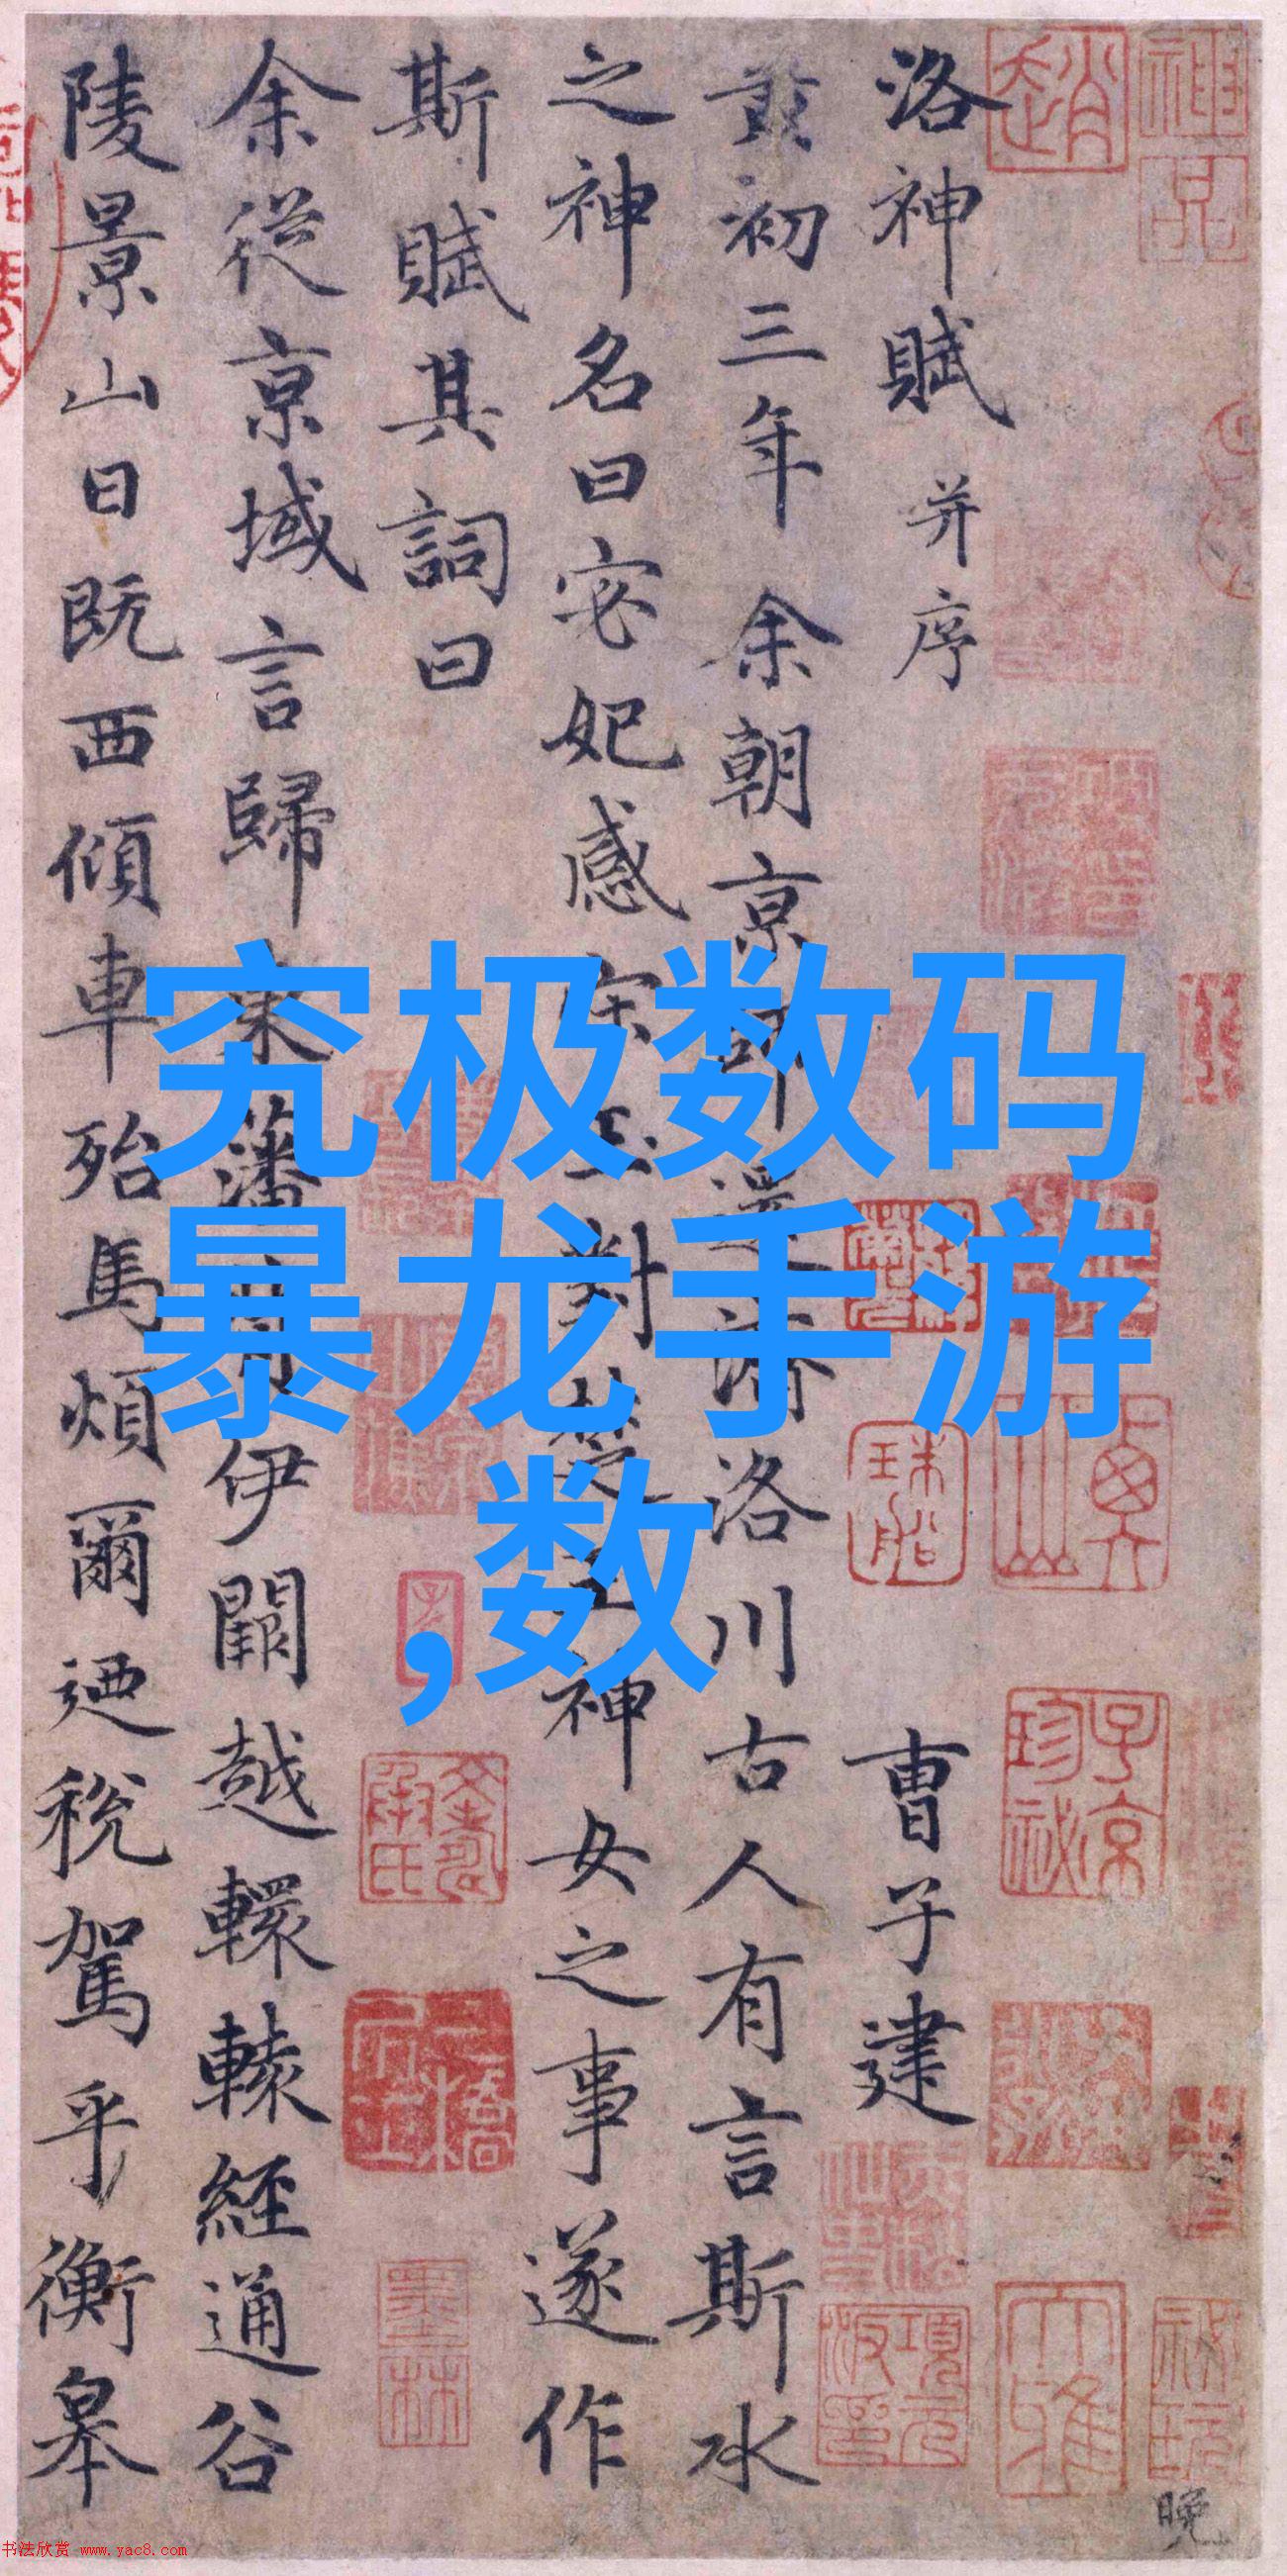 洛神賦 并序
曹子建
黃初三年余朝京師還濟洛川古人有言斯水
之神名曰宓妃感宋玉對楚王神女之事遂作
斯賦其詞曰
余從京域言歸東藩背伊闕越轘轅經通谷
陵景山日既西傾車殆馬煩爾迺稅駕乎蘅皋
究极数码
暴龙手游
,数
趙
子京
珍秘
墨林
晚
书法欣赏 www.yac8.com